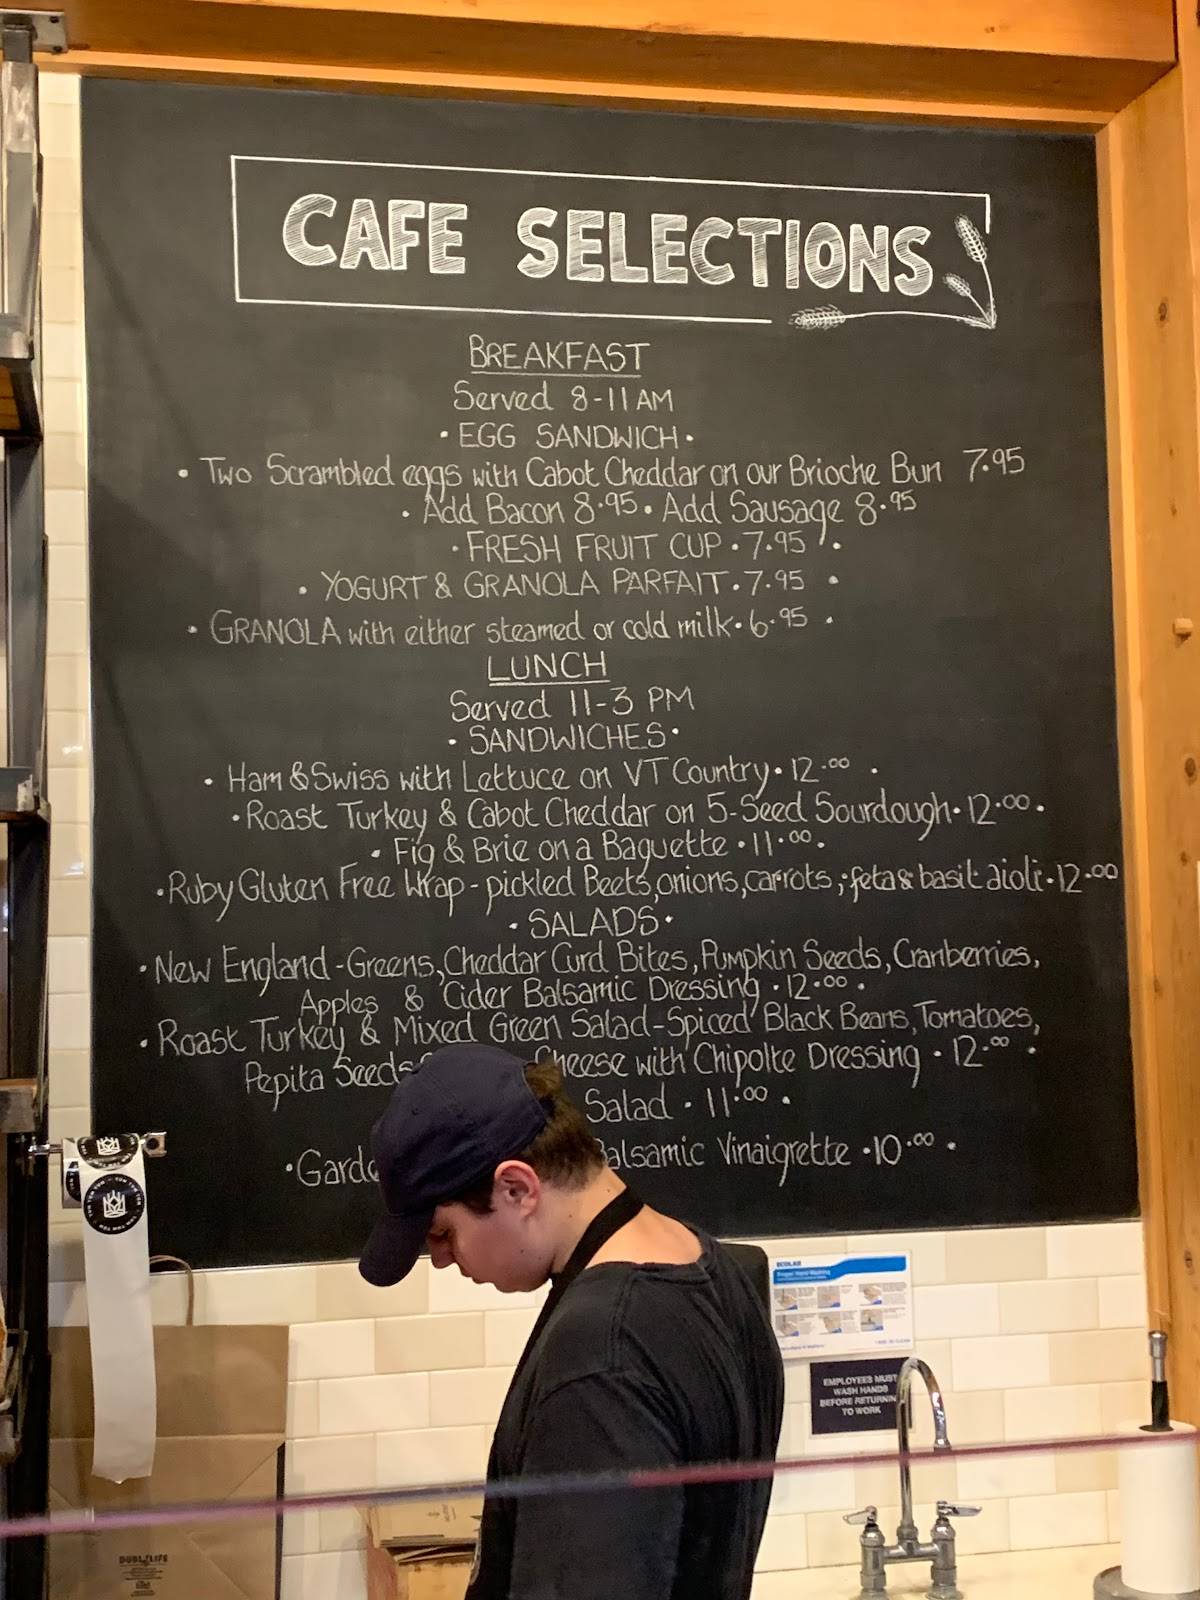 CAFE SELECTIONS
BREAKFAST
Served 8-11 AM
• EGG SANDWICH •
• Two Scrambled eggs with Cabot Cheddar on our Brioche Bun 7.95
• Add Bacon 8.95 • Add Sausage 8.95
• FRESH FRUIT CUP • 7.95 •
• YOGURT & GRANOLA PARFAIT • 7.95 •
• GRANOLA with either steamed or cold milk • 6.95 •
LUNCH
Served 11-3 PM
• SANDWICHES •
• Ham & Swiss with Lettuce on VT Country • 12.00 •
• Roast Turkey & Cabot Cheddar on 5-Seed Sourdough • 12.00 •
• Fig & Brie on a Baguette • 11.00 •
• Ruby Gluten Free Wrap - pickled Beets, onions, carrots, feta & basil aioli • 12.00
• SALADS •
• New England - Greens, Cheddar Curd Bites, Pumpkin Seeds, Cranberries,
Apples & Cider Balsamic Dressing • 12.00 •
• Roast Turkey & Mixed Green Salad - Spiced Black Beans, Tomatoes,
Pepita Seeds Cheese with Chipolte Dressing • 12.00 •
Salad • 11.00 •
• Garde alsamic Vinaigrette • 10.00 •
ECOLAB
EMPLOYEES MUST
WASH HANDS
BEFORE RETURNIN
TO WORK